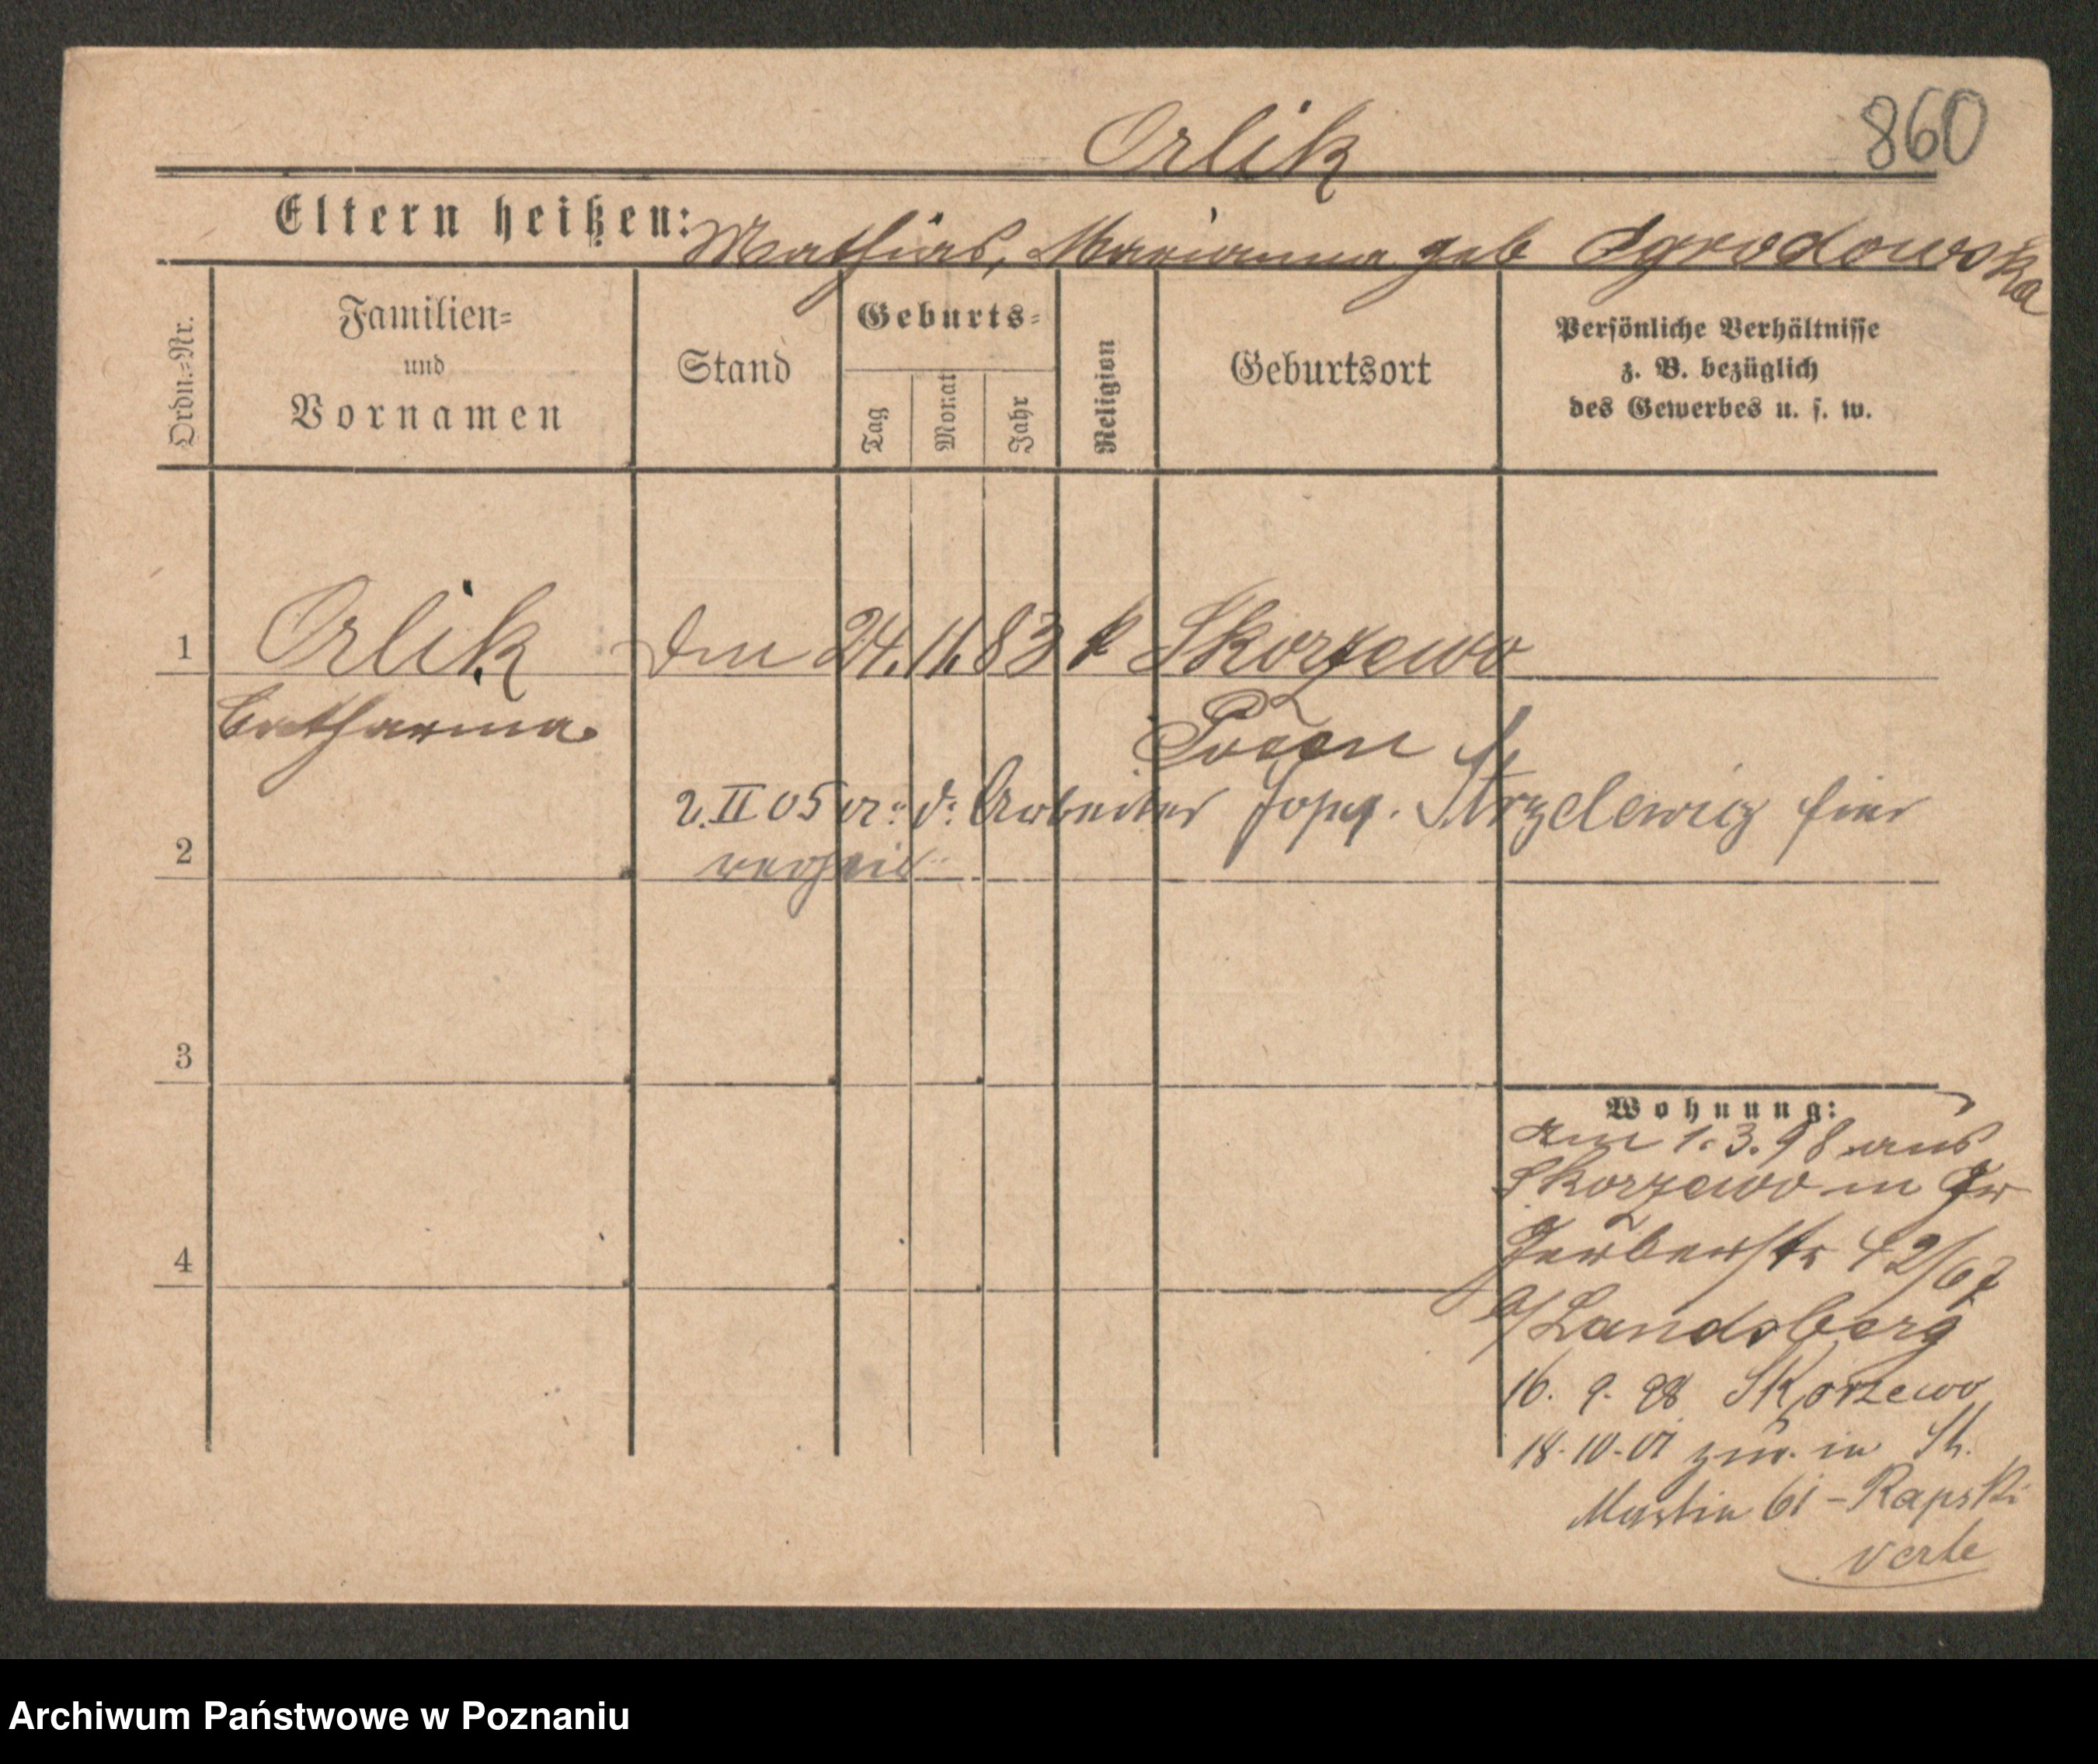 Orlik
860
Eltern heißen: Mathias, Marianna geb Ogrodowska
Ordn.=Nr.
Familien=
und
Vornamen
Stand
Geburts=
Tag
Monat
Jahr
Religion
Geburtsort
Persönliche Verhältnisse
z. B. bezüglich
des Gewerbes u. s. w.
1 Orlik 24. 11. 83 k Skorzewo
Catharina Posen
2. II 05 Arbeiter Strzelewicz hier
2 verheir.
3
4
Wohnung:
am 1. 3. 98 aus
Skorzewo in Gr
Gerberstr 42/
b/ Landsberg
16. 9. 98 Skorzewo
18. 10. 01 zur. in St.
Martin 61 – Rapski
Archiwum Państwowe w Poznaniu